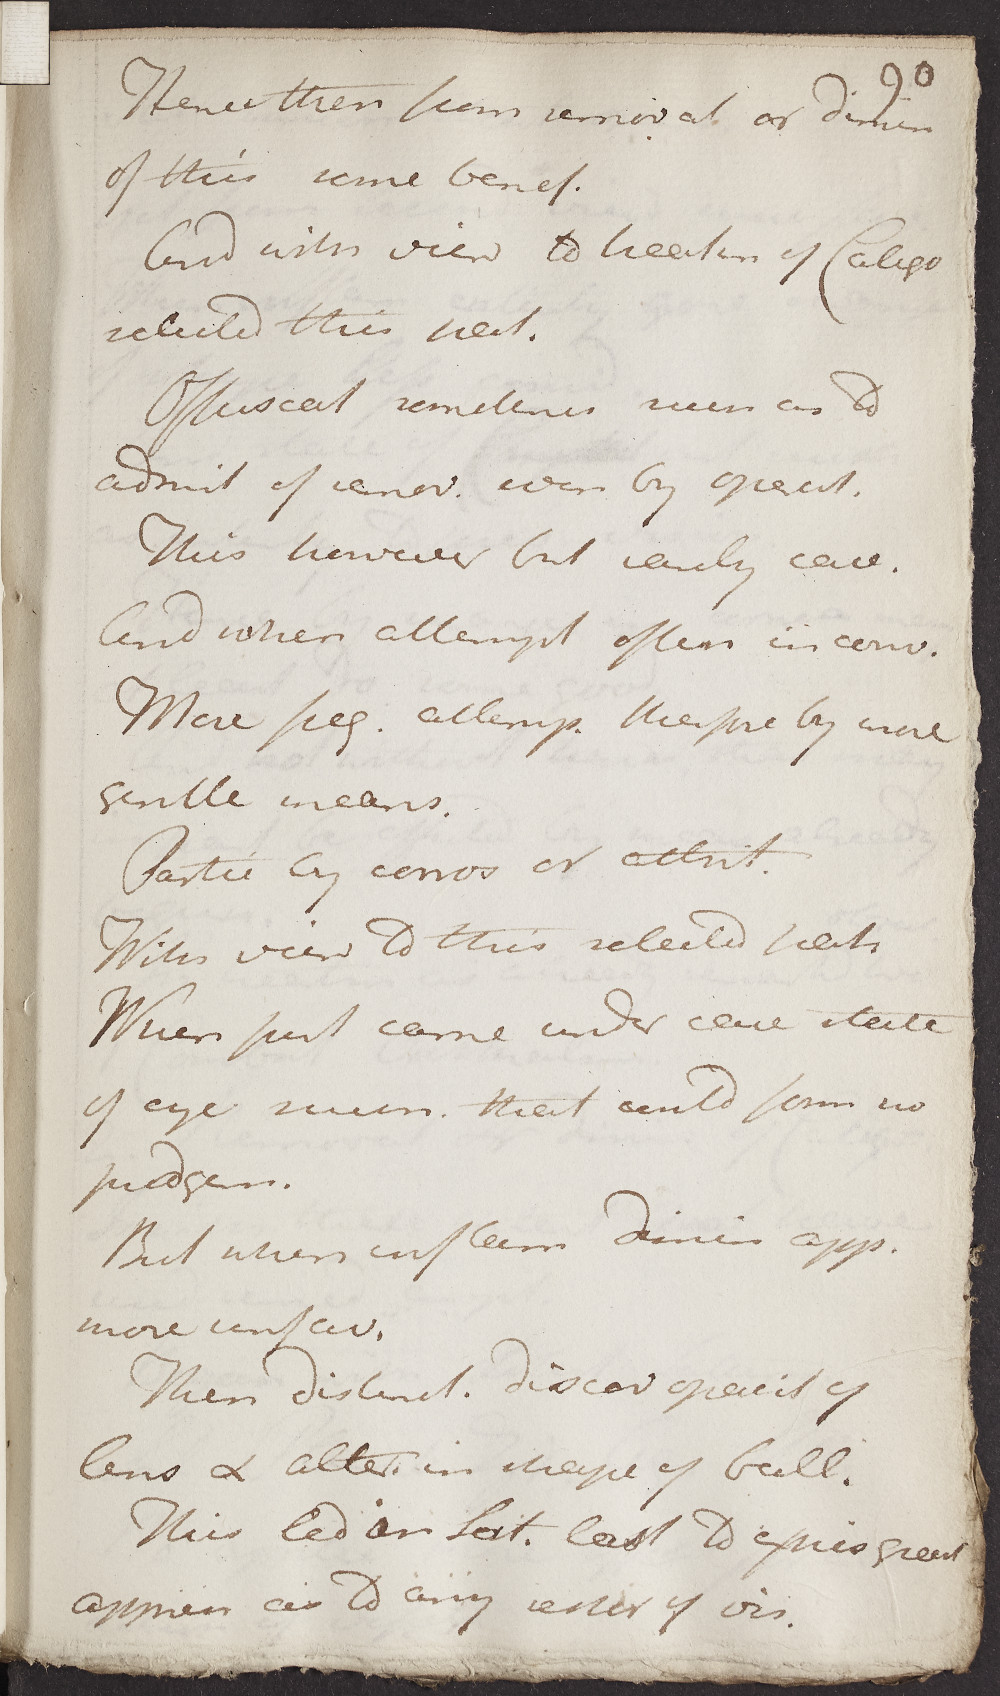 90
Hence then from removal or dimin
of this some benef.
And with view to treatm of Caligo
selected this pat.
Offuscat sometimes such as to
admit of remov. even by operat.
This however but rarely case.
And when attempt often in conv.
More freq. attemp. therfore by more
gentle means.
Partic by corros or attrit.
With view to this selected pats
When first came under care state
of eye such. that could form no
judgem.
But when inflam dimin app.
more unfav.
Then distinct. discov opacit of
lens & alter. in shape of ball.
This led on Sat. last to expres great
appreh as to any restor of vis.